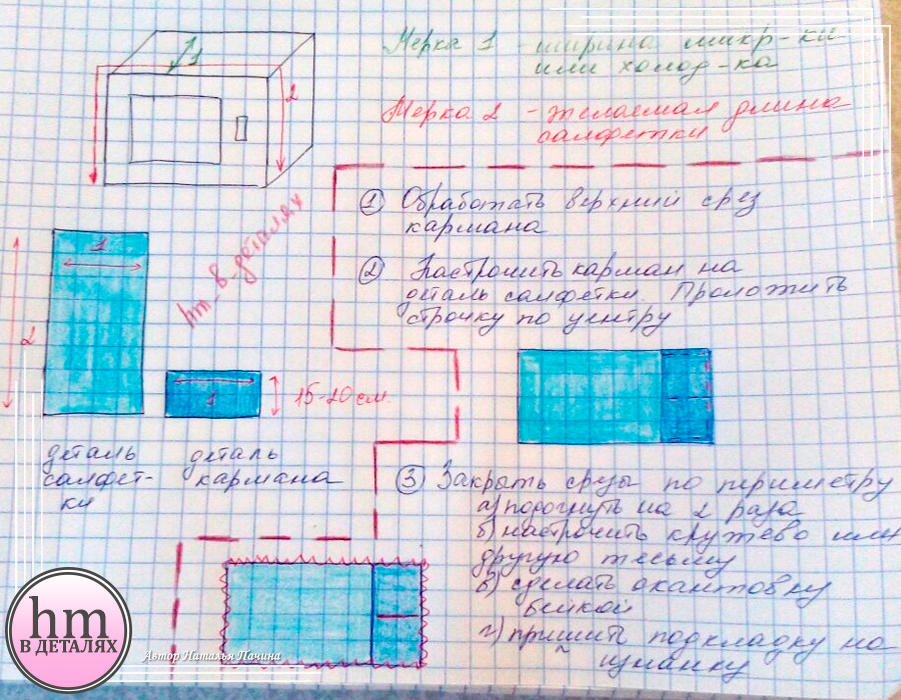 1
Мерка 1 - ширина микр-ки
или холод-ка
2
Мерка 2 - желаемая длина
салфетки
① Обработать верхний срез
кармана
hm_в_деталях
② Настрочить карман на
деталь салфетки. Проложить
строчку по центру
1
2
1
15-20 см.
деталь
салфет-
ки
деталь
кармана
③ Закрыть срезы по периметру
а) подогнуть на 2 раза
б) настрочить кружево или
другую тесьму
в) сделать окантовку
бейкой
г) пришить подкладку на
изнанку
hm
В ДЕТАЛЯХ
Автор Наталья Пачина